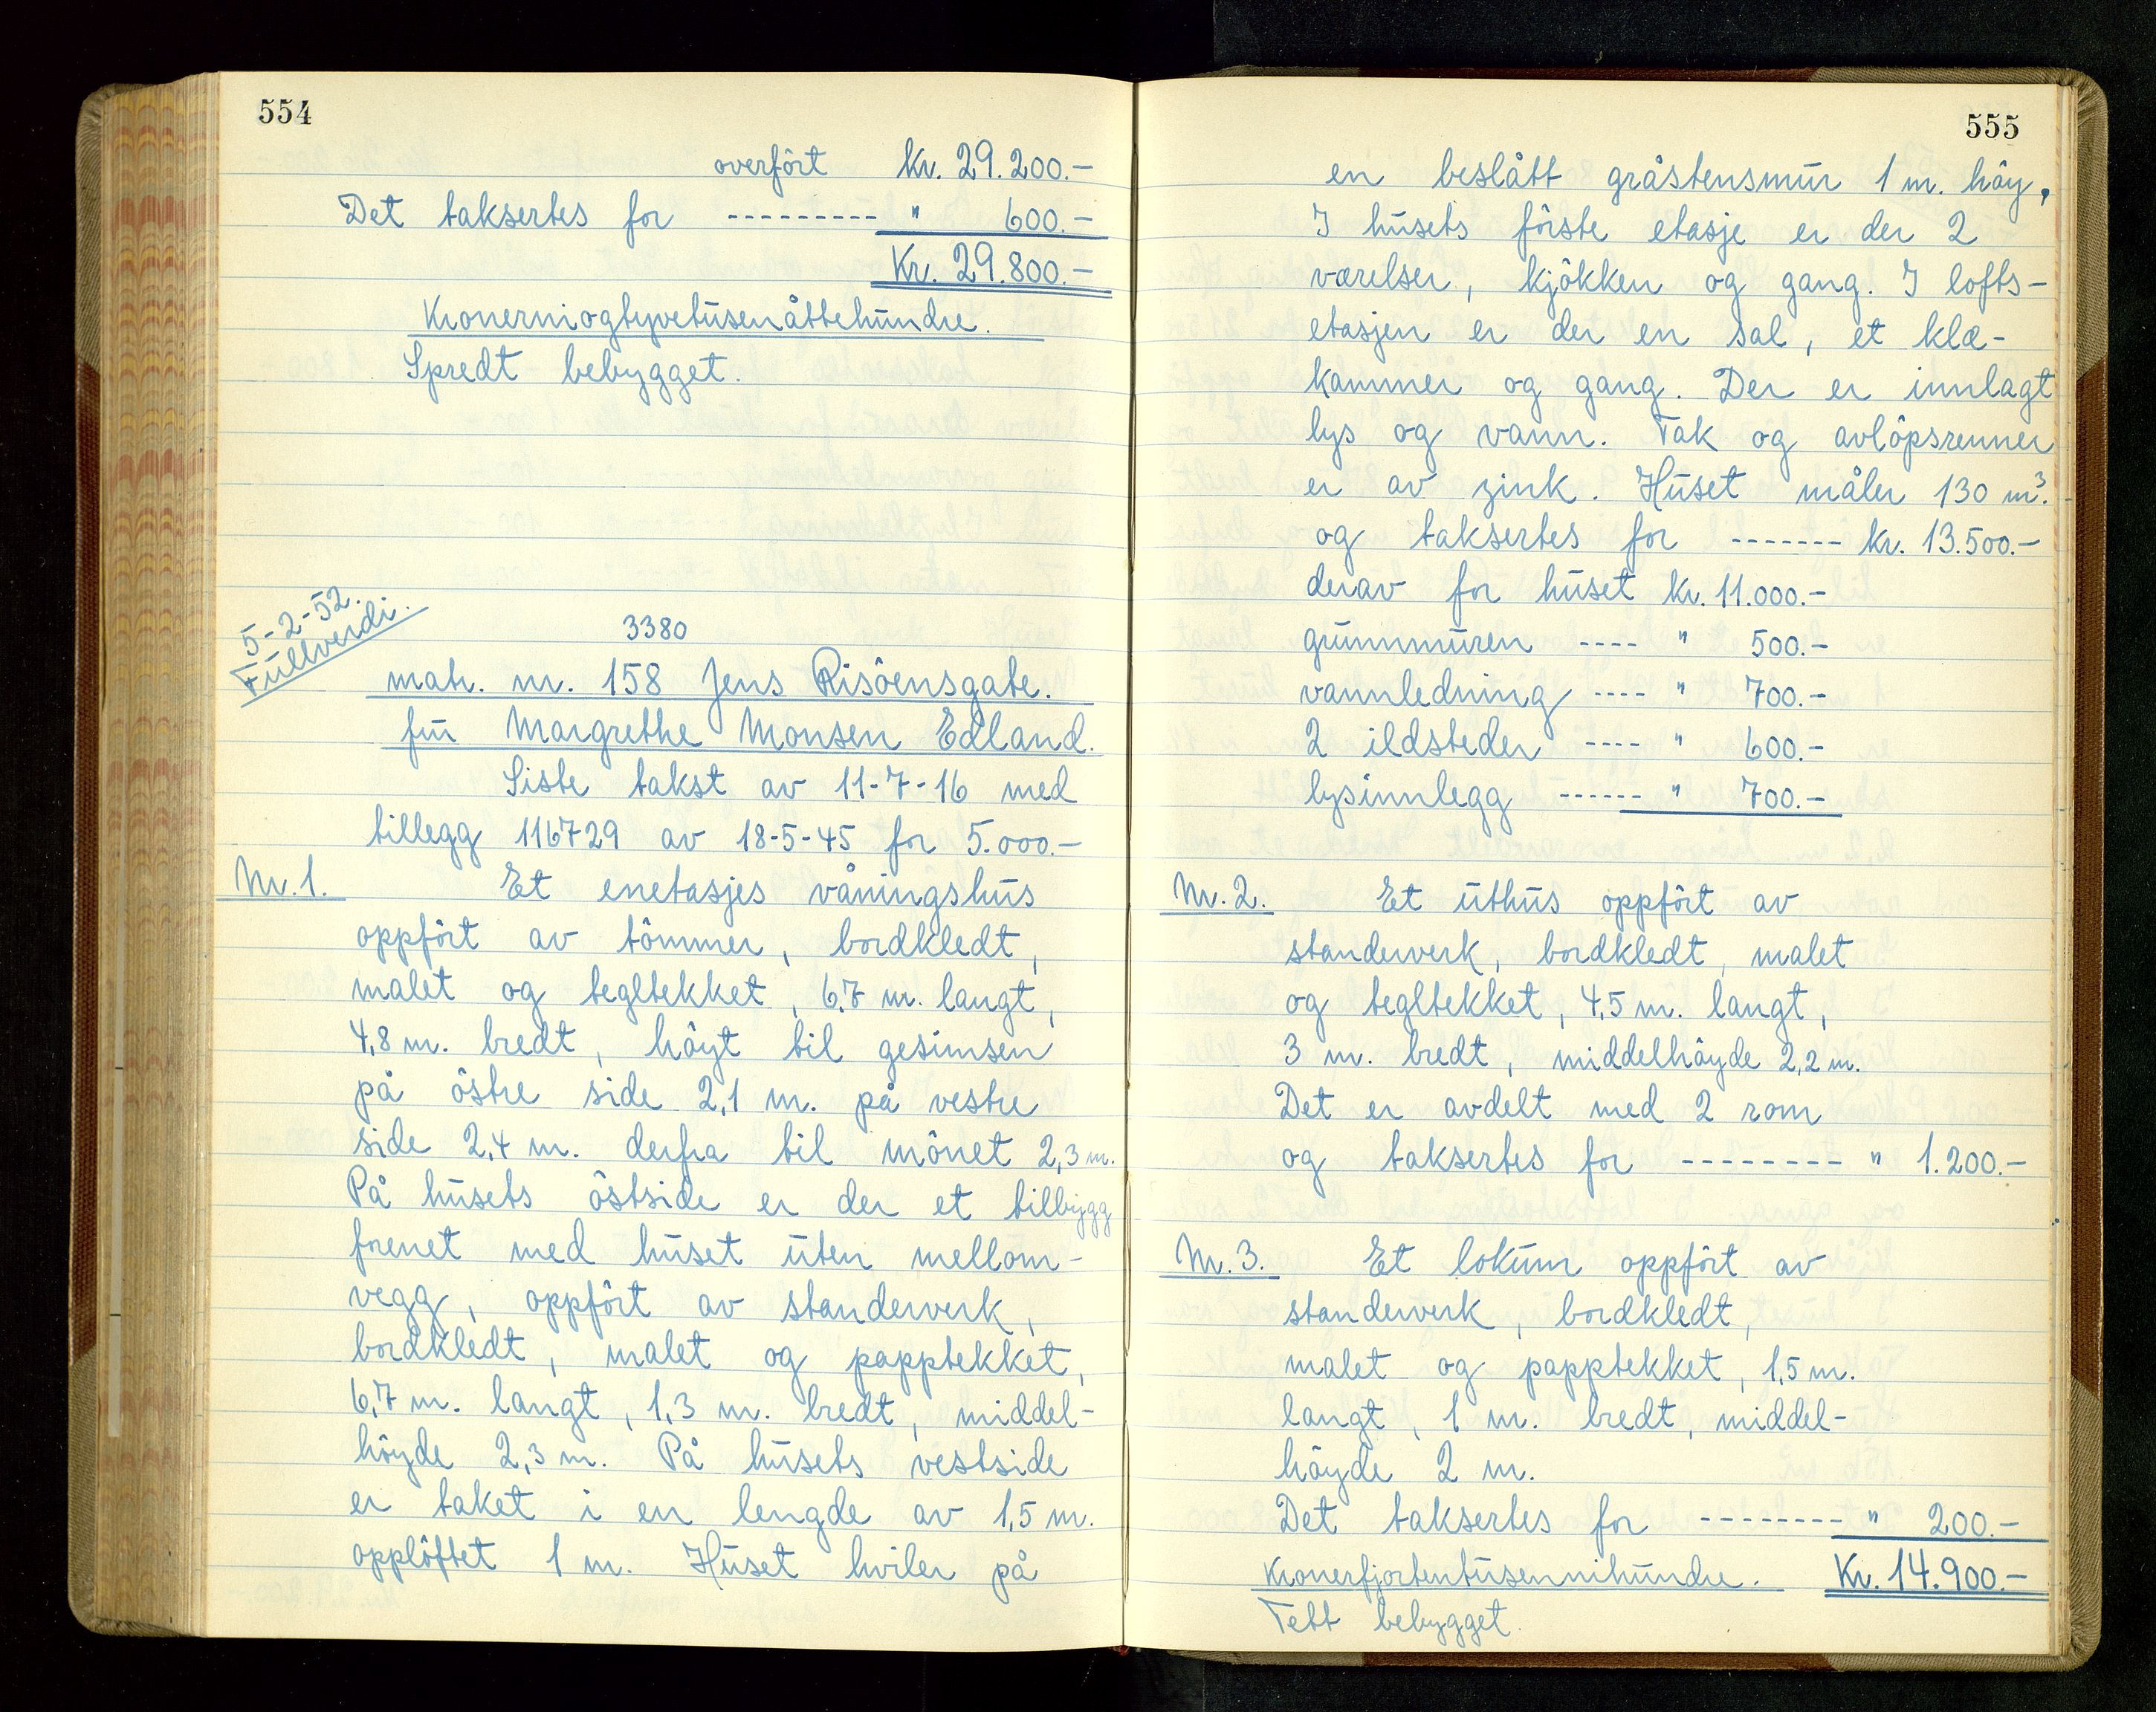 554
overfört kr. 29.200.-
Det taksertes for --------- " 600.-
Kr. 29.800.-
Kronerniogtyvetusenåttehundre.
Spredt bebygget.
5-2-52.
Fullverdi.
3380
matr. nr. 158 Jens Risöensgate.
fru Margrethe Monsen Edland.
Siste takst av 11-7-16 med
tillegg 116729 av 18-5-45 for 5.000.-
Nr. 1. Et enetasjes våningshus
oppfört av tömmer, bordkledt,
malet og tegltekket, 6,7 m. langt,
4,8 m. bredt, höyt til gesimsen
på östre side 2,1 m. på vestre
side 2,4 m. derfra til mönet 2,3 m.
På husets östside er der et tilbygg
forenet med huset uten mellom-
vegg, oppfört av standerverk,
bordkledt, malet og papptekket,
6,7 m. langt, 1,3 m. bredt, middel-
höyde 2,3 m. På husets vestside
er taket i en lengde av 1,5 m.
opplöftet 1 m. Huset hviler på
555
en beslått gråstensmur 1 m. höy.
I husets förste etasje er der 2
værelser, kjökken og gang. I lofts-
etasjen er der en sal, et klæ-
kammer og gang. Der er innlagt
lys og vann. Tak og avlöpsrenner
er av zink. Huset måler 130 m³.
og taksertes for ------- kr. 13.500.-
derav for huset kr. 11.000.-
grunnmuren ---- " 500.-
vannledning ---- " 700.-
2 ildsteder ---- " 600.-
lysinnlegg ------ " 700.-
Nr. 2. Et uthus oppfört av
standerverk, bordkledt, malet
og tegltekket, 4,5 m. langt,
3 m. bredt, middelhöyde 2,2 m.
Det er avdelt med 2 rom
og taksertes for -------- " 1.200.-
Nr. 3. Et lokum oppfört av
standerverk, bordkledt,
malet og papptekket, 1,5 m.
langt, 1 m. bredt, middel-
höyde 2 m.
Det taksertes for -------- " 200.-
Kronerfjortentusennihundre. Kr. 14.900.-
Tett bebygget.